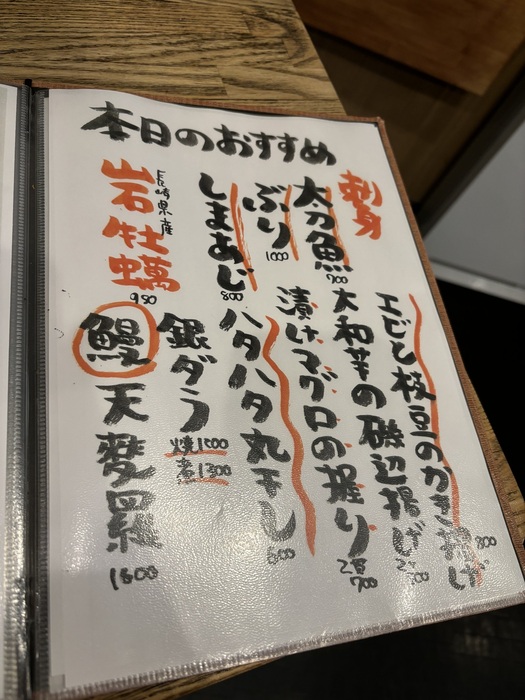 本日のおすすめ
刺身
太刀魚
900
ぶり
1000
しまあじ
800
長崎県産
岩牡蠣
950
エビと枝豆のかき揚げ
800
大和芋の磯辺揚げ
漬けマグロの握り
2貫
700
ハタハタ丸干し
600
銀ダラ
焼1500
煮1300
鰻天麩羅
1800